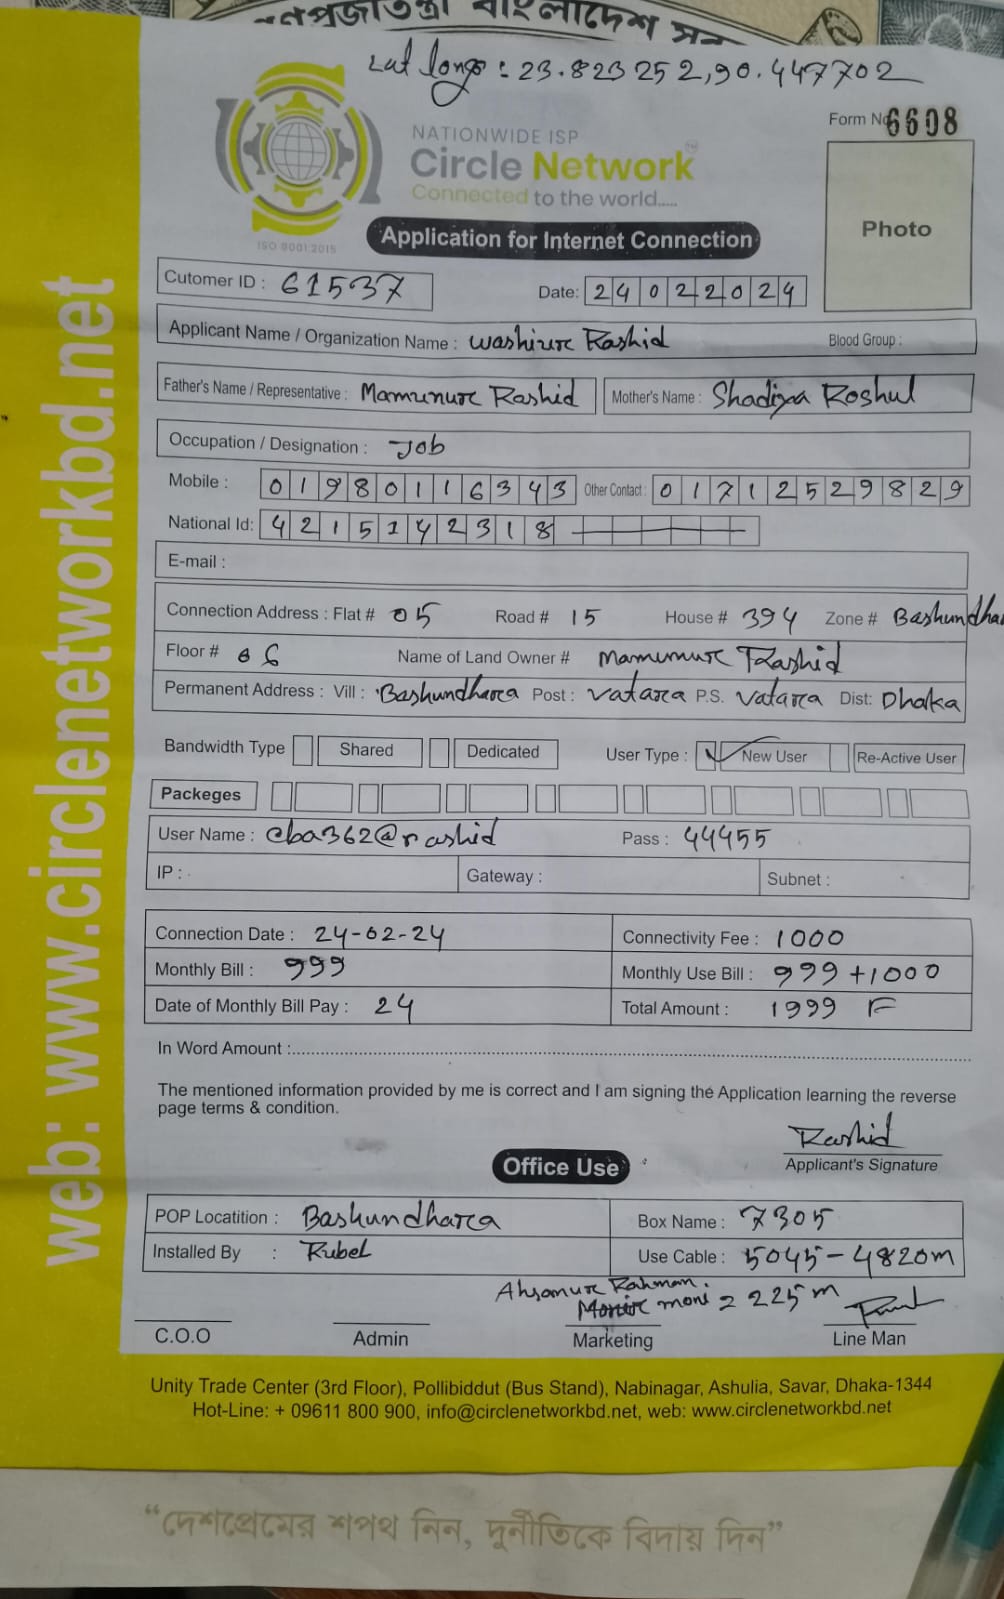 গণপ্রজাতন্ত্রী বাংলাদেশ
Lat long : 23.823252,90.447702
Form No 6608
NATIONWIDE ISP
Circle Network
Connected to the world.....
ISO 9001:2015
Photo
Application for Internet Connection
Cutomer ID : 61537
Date: 24022024
Applicant Name / Organization Name : Washiur Rashid
Blood Group :
Father's Name / Representative : Mamunur Rashid
Mother's Name : Shadiya Roshul
Occupation / Designation : Job
Mobile : 01980116343 Other Contact : 01712529829
National Id: 4215142318
E-mail :
Connection Address : Flat # 05 Road # 15 House # 394 Zone # Bashundhara
Floor # 06 Name of Land Owner # Mamunur Rashid
Permanent Address : Vill : Bashundhara Post : Vatara P.S. Vatara Dist: Dhaka
Bandwidth Type Shared Dedicated User Type : ✓ New User Re-Active User
Packeges
User Name : cba362@rashid Pass : 44455
IP : Gateway : Subnet :
Connection Date : 24-02-24 Connectivity Fee : 1000
Monthly Bill : 999 Monthly Use Bill : 999+1000
Date of Monthly Bill Pay : 24 Total Amount : 1999 F
In Word Amount :
The mentioned information provided by me is correct and I am signing the Application learning the reverse
page terms & condition.
Rashid
Applicant's Signature
Office Use
POP Locatition : Bashundhara Box Name : 7305
Installed By : Rubel Use Cable : 5045-4820m
Ahsanur Rahman.
moni = 225m
C.O.O Admin Marketing Line Man
Unity Trade Center (3rd Floor), Pollibiddut (Bus Stand), Nabinagar, Ashulia, Savar, Dhaka-1344
Hot-Line: + 09611 800 900, info@circlenetworkbd.net, web: www.circlenetworkbd.net
web: www.circlenetworkbd.net
“দেশপ্রেমের শপথ নিন, দুর্নীতিকে বিদায় দিন”